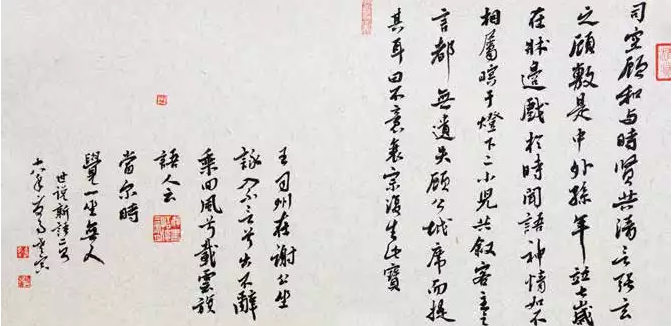 司空顧和与時賢共清言張玄
之顧敷是中外孫年並七歲
在牀邊戲於時聞語神情如不
相屬瞑于燈下二小兒共叙客主之
言都無遺失顧公越席而提
其耳曰不意衰宗復生此寶
王司州在謝公坐
詠入不言兮出不辭
乘回風兮載雲旗
語人云
當尔時
覺一坐無人
世说新語二則